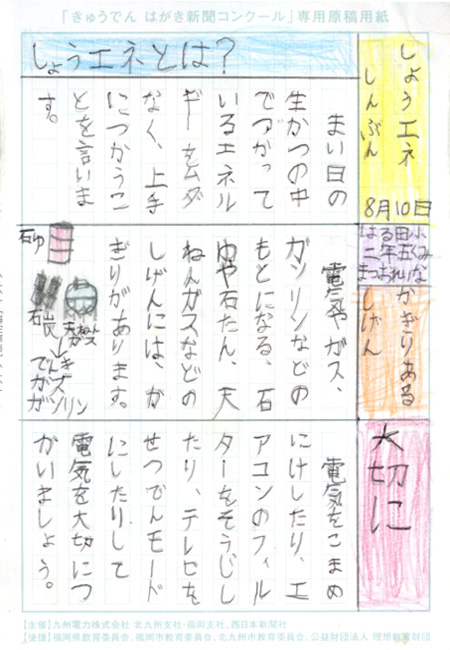 「きゅうでん はがき新聞コンクール」専用原稿用紙
しょうエネ
しんぶん
8月10日
しょうエネとは？
まい日の
生かつの中
でつかって
いるエネル
ギーをムダ
なく、上手
につかうこ
とを言いま
す。
かぎりある
しげん
電気やガス、
ガソリンなどの
もとになる、石
ゆや石たん、天
ねんガスなどの
しげんには、か
ぎりがあります。
石ゆ
石炭
天ねんガス
でんき
ガス
ガソリン
大切に
電気をこまめ
にけしたり、エ
アコンのフィル
ターをそうじし
たり、テレビを
せつでんモード
にしたりして
電気を大切につ
かいましょう。
【主催】九州電力株式会社 北九州支社・福岡支社、西日本新聞社
【後援】福岡県教育委員会、福岡市教育委員会、北九州市教育委員会、公益財団法人 理想教育財団